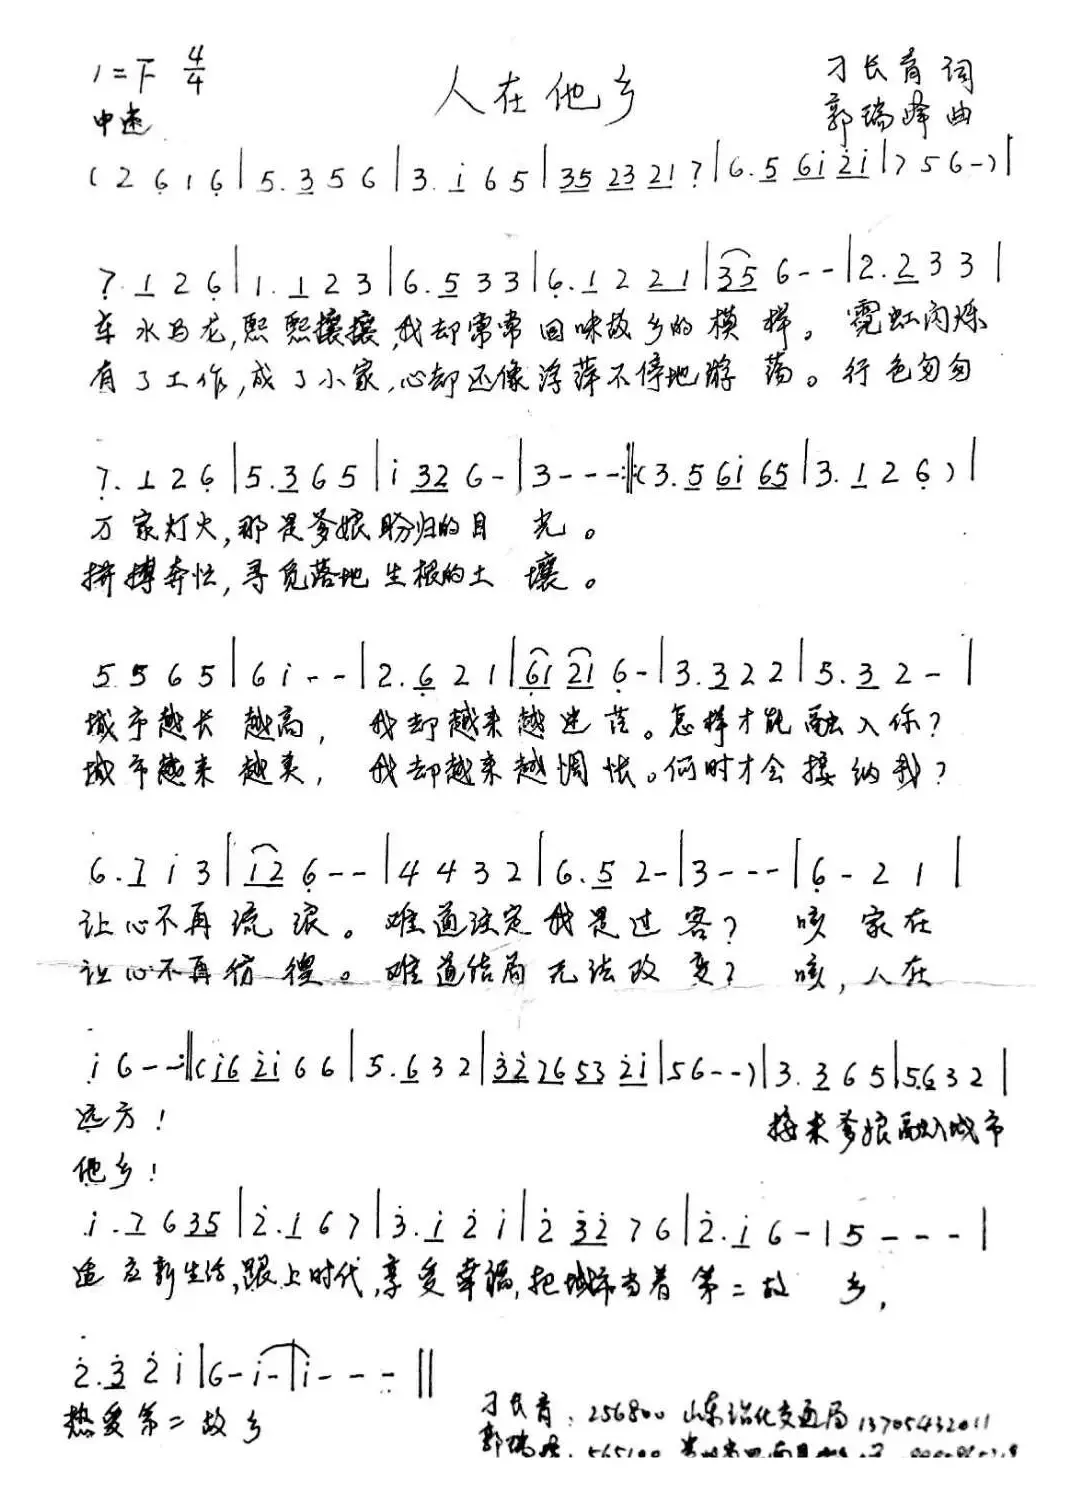 1=下 4/4
人在他乡
刁长育 词
中速
郭瑞峰 曲
(2 6̣ 1 6̣ | 5. 3 5 6 | 3. i 6 5 | 35 23 21 7 | 6. 5 6i 2̇i | 7 5 6 -) |
7̣. 1 2 6̣ | 1. 1 2 3 | 6. 5 3 3 | 6̣. 1 2 21 | 35 6 - - | 2. 2 3 3 |
车水马龙,熙熙攘攘,我却常常回味故乡的模样。霓虹闪烁
有了工作,成了小家,心却还像浮萍不停地游荡。行色匆匆
7̣. 1 2 6̣ | 5. 3 6 5 | i 32 6 - | 3 - - - :‖: (3. 5 6i 65 | 3. 1 2 6̣) |
万家灯火,那是爹娘盼归的目光。
拼搏奔忙,寻觅落地生根的土壤。
5 5 6 5 | 6 i - - | 2. 6̣ 2 1 | 6̣1 21 6̣ - | 3. 3 2 2 | 5. 3 2 - |
城市越长越高, 我却越来越迷茫。怎样才能融入你?
城市越来越美, 我却越来越惆怅。何时才会接纳我?
6. 7 i 3 | 12 6̣ - - | 4 4 3 2 | 6. 5 2 - | 3 - - - | 6̣ - 2 1 |
让心不再流浪。难道注定我是过客? 咳 家在
让心不再彷徨。难道结局无法改变? 咳,人在
i 6 - - :‖ (i6 2̇i 6 6 | 5. 6 3 2 | 3̇2̇ 76 53 2̇i | 5 6 - -) | 3. 3 6 5 | 5. 6 3 2 |
远方!
接来爹娘融入城市
他乡!
i. 7 6 35 | 2̇. 1 6 7 | 3̇. i 2̇ i | 2̇ 3̇2̇ 7 6 | 2̇. i 6 - | 5 - - - |
适应新生活,跟上时代,享受幸福,把城市当着第二故乡,
2̇. 3̇ 2̇ i | 6 - i - | i - - - ‖
热爱第二故乡
刁长育:256800 山东沾化交通局 13705432011
郭瑞峰:565100